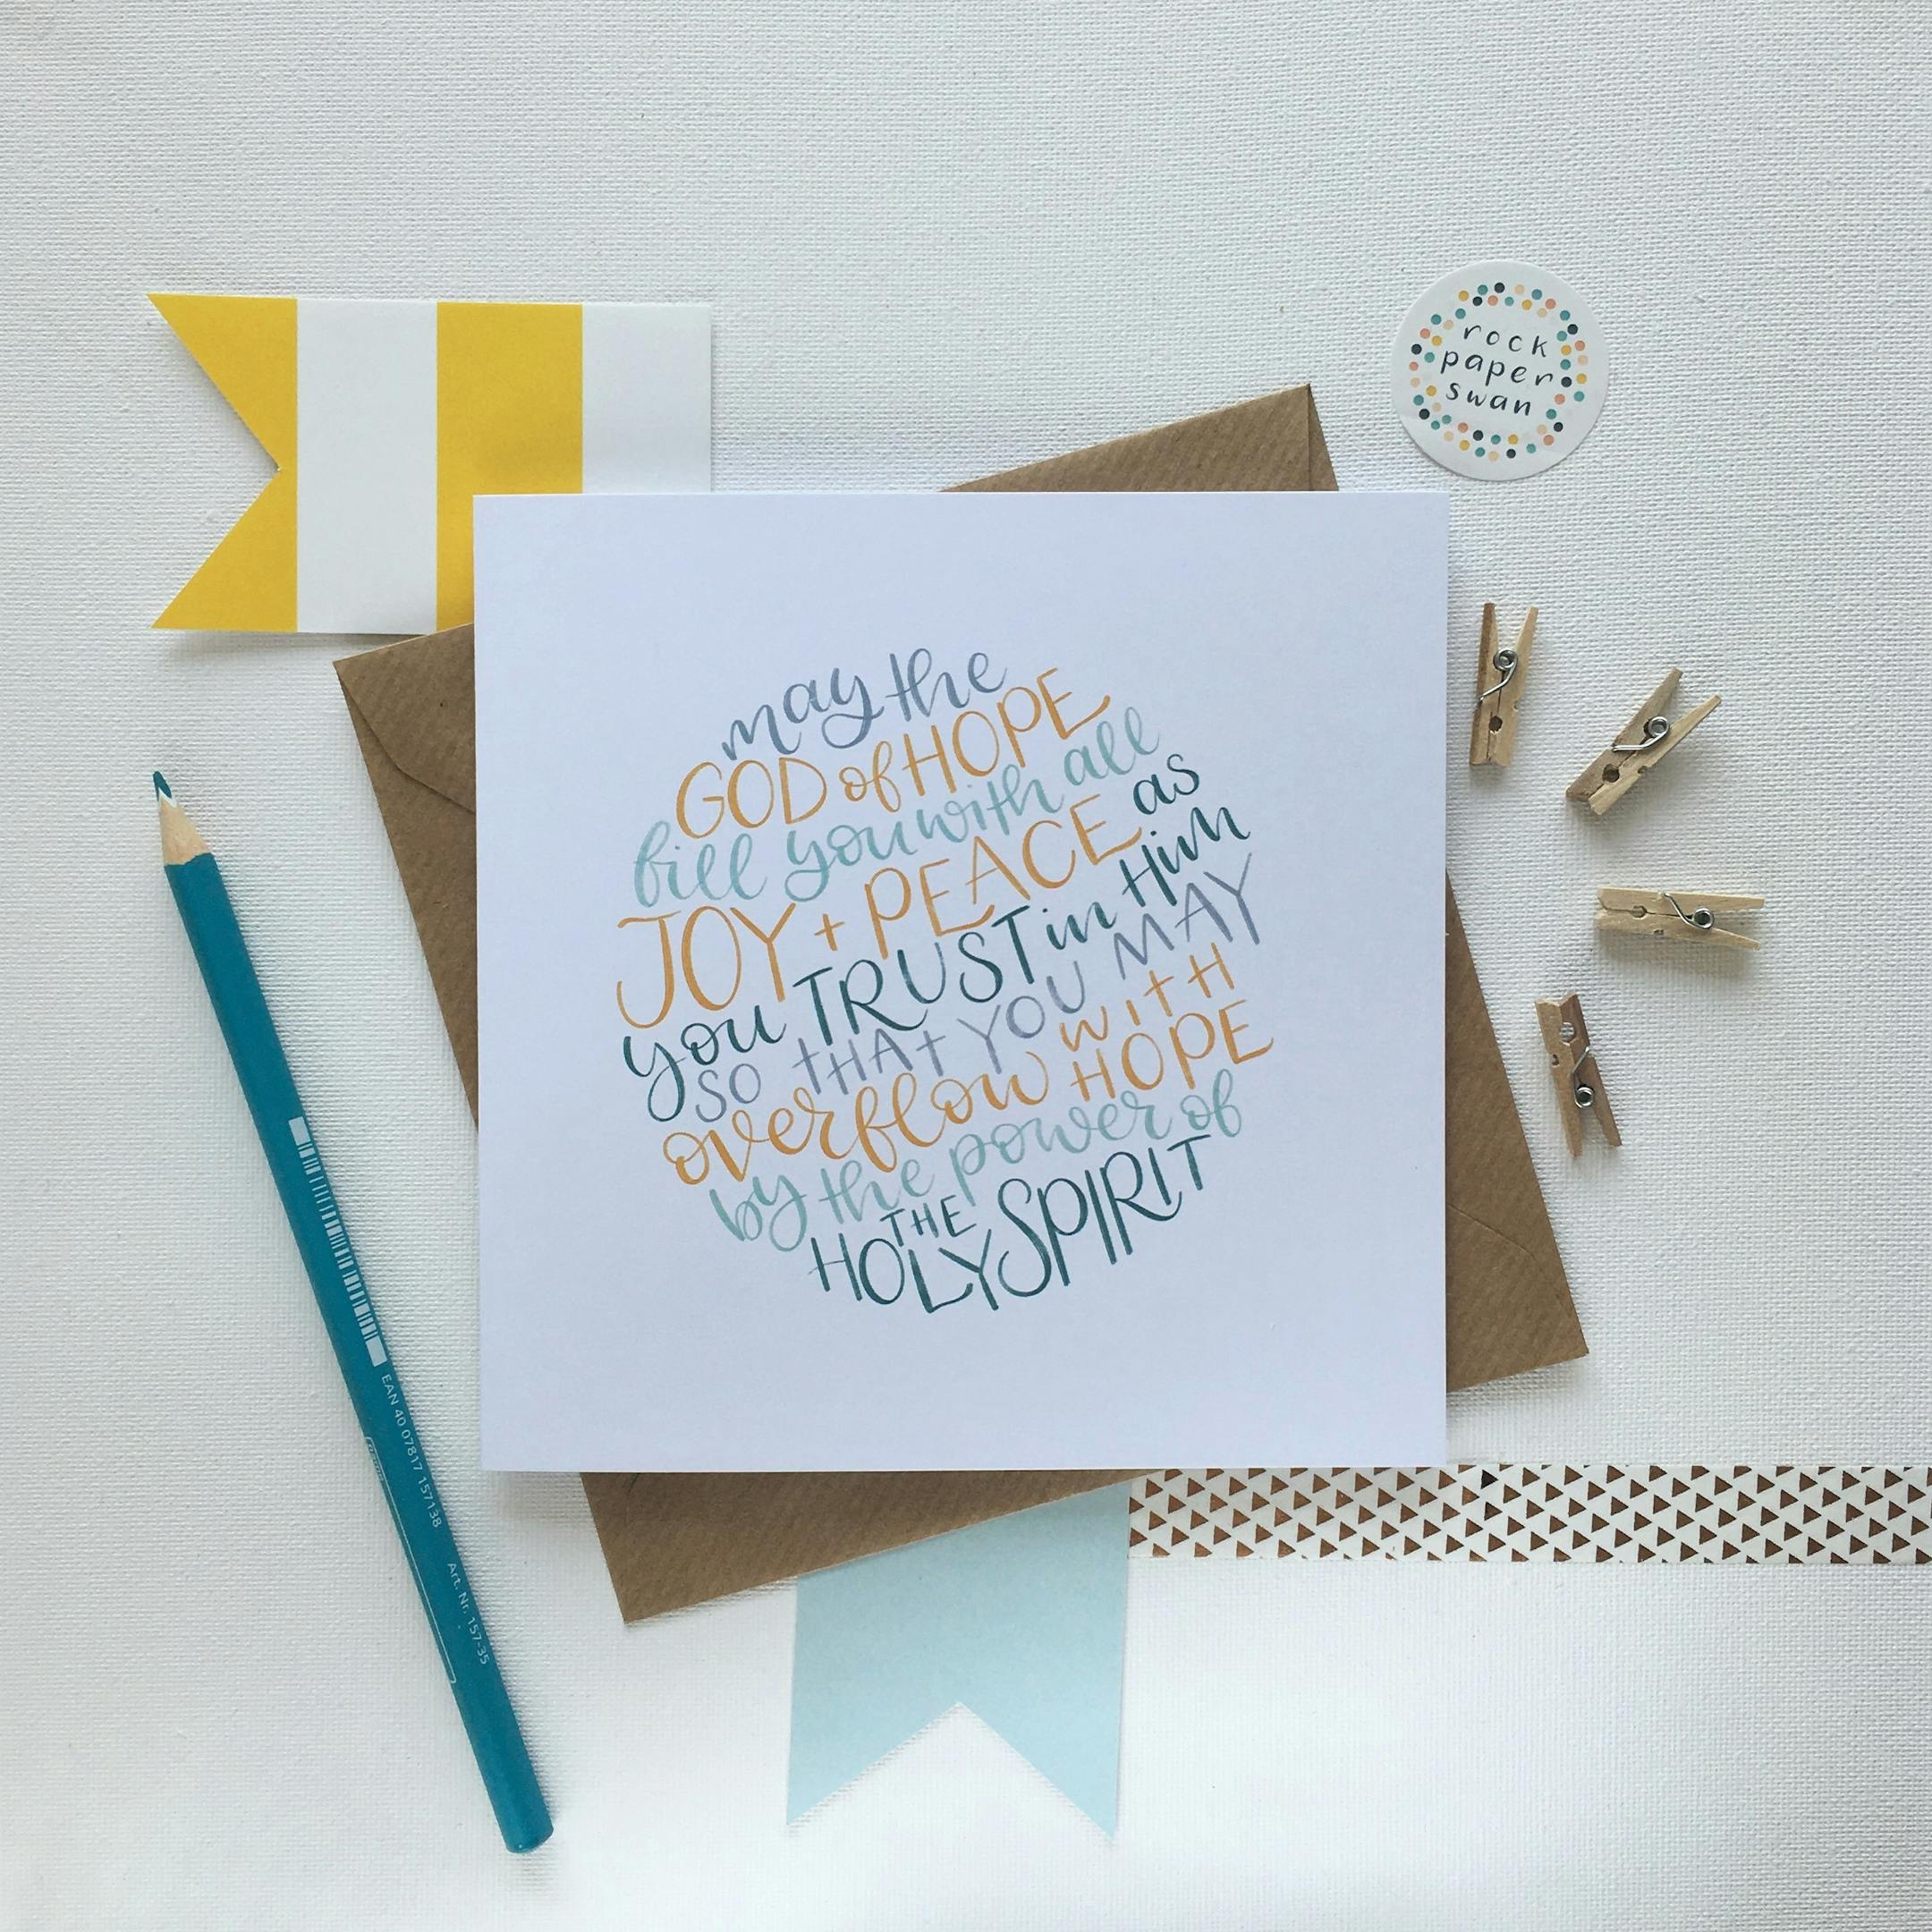 rock
paper
swan
may the
GOD of HOPE
fill you with all
JOY + PEACE as
you TRUST in Him
SO THAT YOU MAY
overflow WITH HOPE
by the power of
THE
HOLY SPIRIT
EAN 40 07817 157138
Art. Nr. 157-35